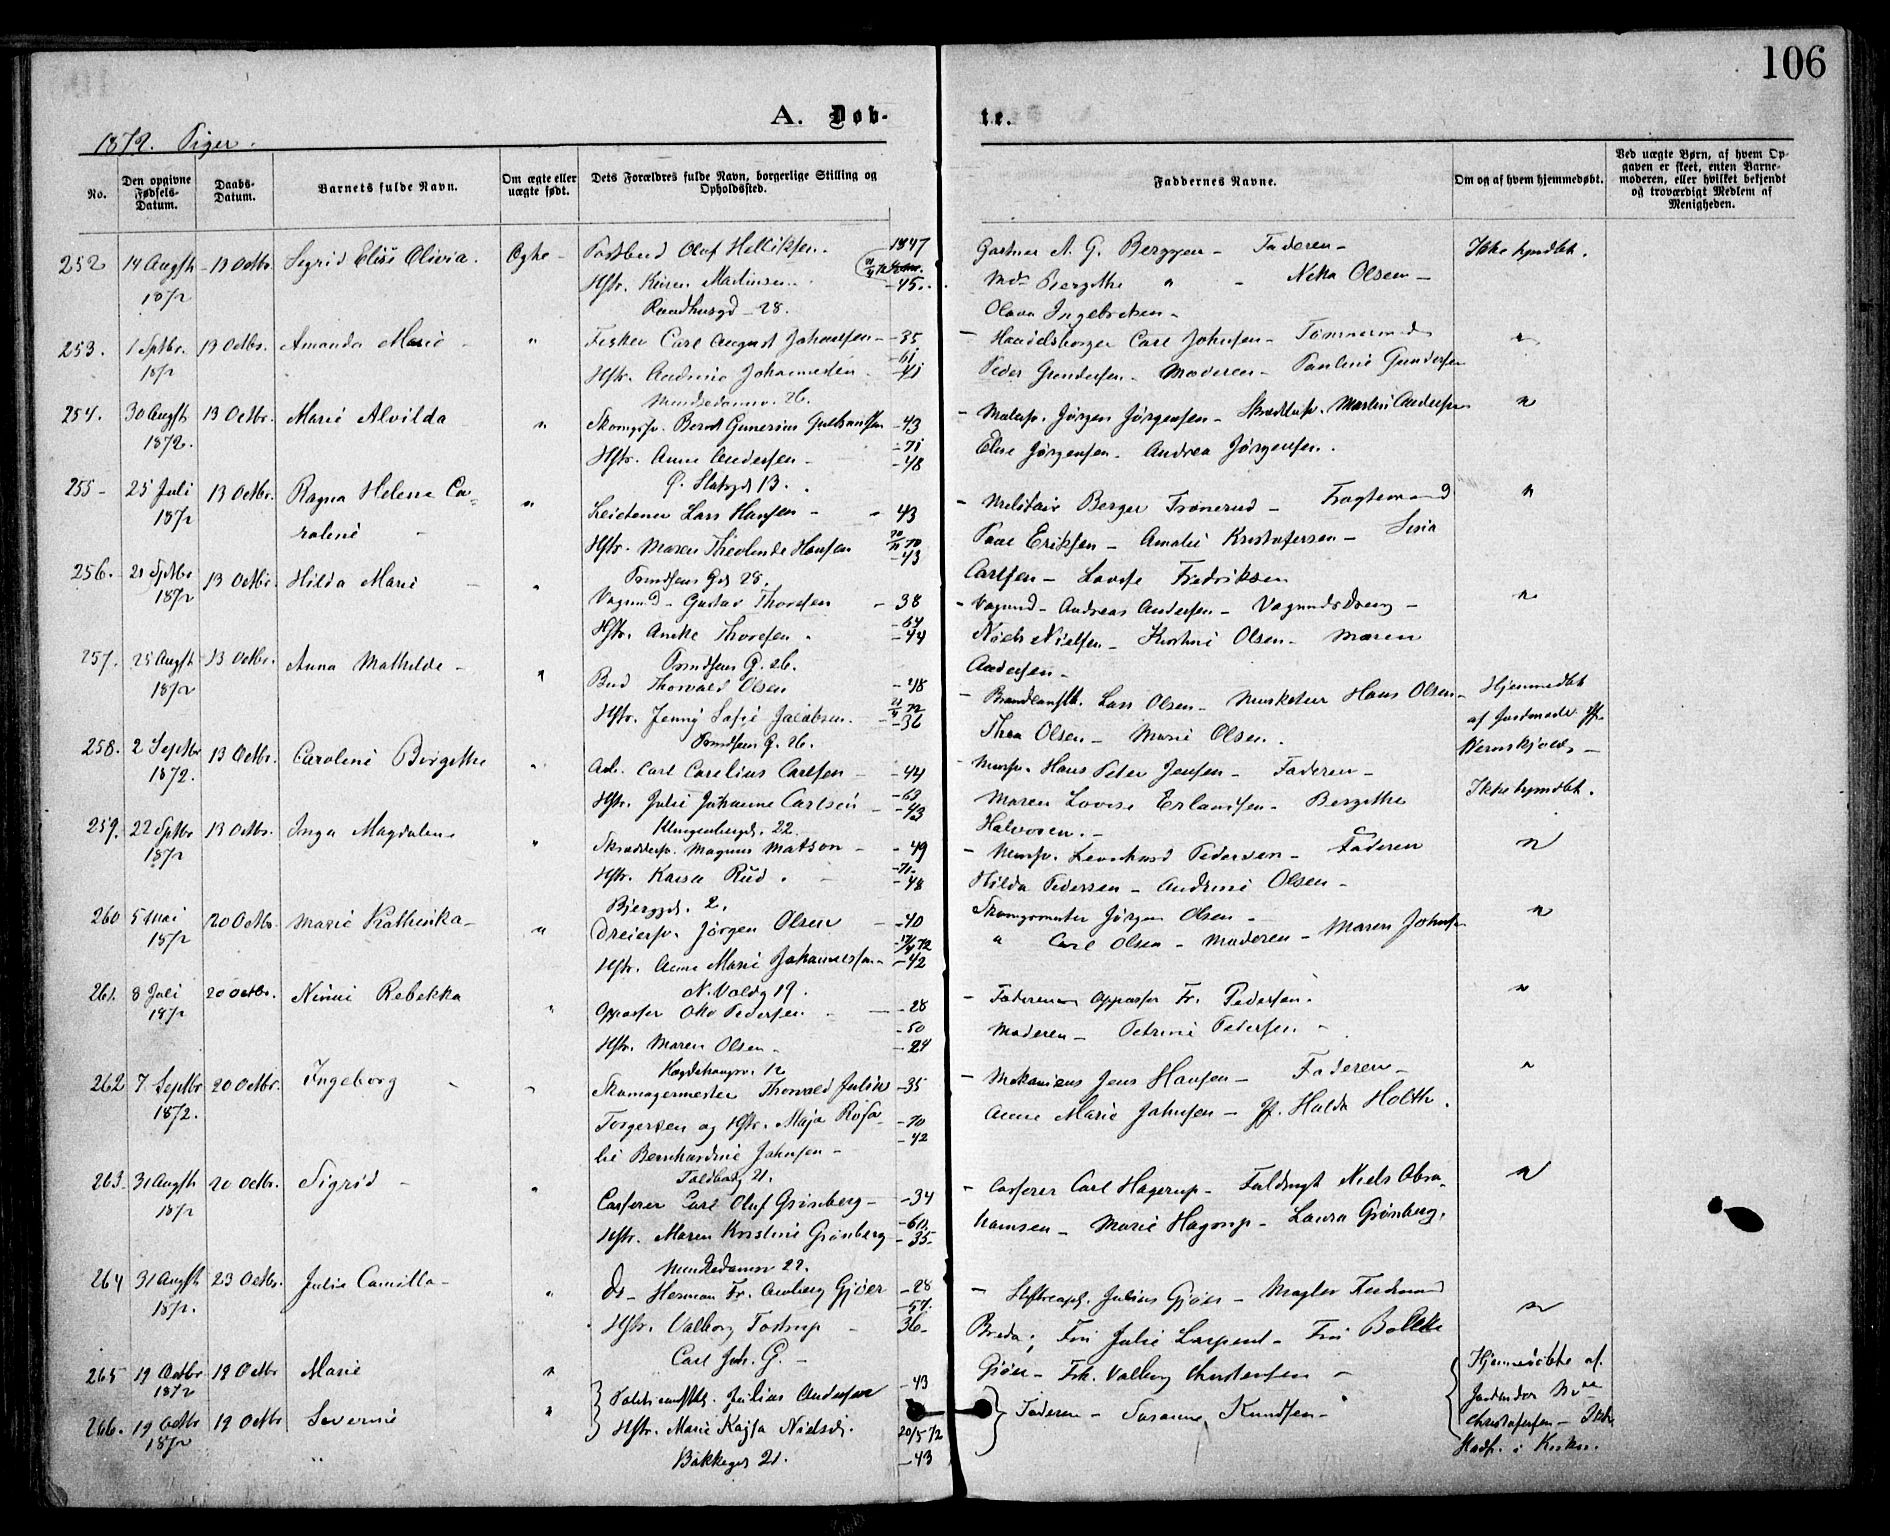 106
A. Døb-
te.
1872. Piger.
No.
Den opgivne Fødsels-Datum.
Daabs-Datum.
Barnets fulde Navn.
Om ægte eller uægte født.
Dets Forældres fulde Navn, borgerlige Stilling og Opholdssted.
Faddernes Navne.
Om og af hvem hjemmedøbt.
Ved uægte Børn, af hvem Op-
gaven er skeet, enten Barne-
moderen, eller hvilket bekjendt
og troværdigt Medlem af
Menigheden.
252 14 Augst 1872 13 Octbr. Sigrid Elise Olivia. Ægte Postbud Olaf Helliksen. 1847 Gartner A. G. Berggren Faderen Ikke hjmdbt.
Hstr. Karen Martinsen. 45. Md. Bergithe " Netta Olsen
Raadhusgd 28. Olava Ingebretsen
253. 1 Sptbr. 1872 13 Octbr. Amanda Marie " Fisker Carl August Johansen 35 Handelsborger Carl Johnsen Tømmermand "
61.
Hstr. Andrine Johannesen 41 Peder Gundersen Moderen Pauline Gundersen
Munkedamsv. 26.
254. 30 Augst 1872. 13 Octbr. Marie Alvilda " Skomgsv. Bernt Gunerius 43 Malersv. Jørgen Jørgensen Martin Andersen "
71
Hstr. Anne Andersen 48 Else Jørgensen. Andrea Jørgensen.
Ø. Slotsgd 13.
255 25 Juli 1872 13 Octbr. Ragna Helene Ca- " Lars Hansen 43 Militair Berger Tronerud Fragtemand "
roline Hstr. Maren Theolinde Hansen 43 Paul Eriksen Amalie Kristofersen
256. 21 Sptbr 1872 13 Octbr. Hilda Marie " 28. Carlsen Lovise Fredriksen
Vogmd. Gustav Thoresen 38 Vogmd. Andreas Andersen Vogmandsdreng "
64
Hstr. Anette Thoresen. 44 Niels Nielsen Kristine Olsen Maren
257. 25 Augst 1872 13 Octbr. Anna Mathilde " G. 26. Andersen
Bud Thorvald Olsen 48 Lars Olsen Musketeer Hans Olsen Hjemmedbt
Hstr. Jenny Sofie Jacobsen. 36 Thea Olsen Marie Olsen. af Jordmoder
258. 2 Septbr 1872. 13 Octbr. Caroline Birgitte " G. 26. Wernskjold
Arb. Carl Carelius Carlsen 44 Mursv. Hans Peter Jensen Faderen
63
Hstr. Julie Johanne Carlsen 43 Maren Lovise Erlandsen Bergithe Ikke hjmdbt.
259. 22 Sptbr 1872 13 Octbr. Inga Magdalena " Klingenbergd. 22. Halvorsen.
Skræddersv. Magnus Matson 49 Mursv. Leonhard Pedersen Faderen "
71.
Hstr. Kaisa Rud. 48 Hilda Pedersen Andrine Olsen
Bjerggd. 2.
260 5 Mai 1872 20 Octbr. Marie Kathinka " Dreiersv. Jørgen Olsen 40 Skomgermester Jørgen Olsen "
Hstr. Anne Marie Johannessen 42 " Carl Olsen Moderen Maren Johnsen
N. Voldg 19.
261. 8 Juli 1872 20 Octbr. Ninni Rebekka " Oppasser Otto Pedersen 28 Faderen Oppasser Fr. Pedersen. "
50
Hstr. Maren Olsen 24 Moderen Petrine Petersen
Hægdehaugsv. 12
262 7 Septbr 1872. 20 Octbr. Ingeborg " Skomagermester Thorvald Julin 35 Mekanicus Jens Hansen Faderen "
Torgersen og Hstr. Maja Rosa- 70 Anne Marie Johnsen Jf. Hulda Holth.
lie Bernhardine Johnsen 42
Toldbodg 21.
263. 31 Augst 1872 20 Octbr. Sigrid " Casserer Carl Oluf Grønberg 34 Casserer Carl Hagerup Fuldmgt Niels Abra- "
60.
Hstr. Maren Kristine Grønberg 35 hamsen Marie Hagerup Laura Grønberg.
Munkedamsv 22.
264 31 Augst 1872. 23 Octbr. Julie Camilla " Dr. Herman Fr. Gjøer 28 Julius Gjøer Mægler Ferdinand "
57.
Hstr. Valborg Tostrup 36 Breda; Fru Julie Larpent Fru Bolette
Carl Joh. G.
265 19 Octbr 1872 19 Octbr Marie " Julius Andersen 43 Gjøer Frk. Valborg Christensen Hjemmedøbte af
266. 19 Octbr 1872 19 Octbr Severine " Hstr. Marie Kajsa Nielsdr. 20/5 72 Faderen Susanne Knudsen Jordmoder
Bakkegd 21. 43 Christofersen
Stadf. i Kirken.